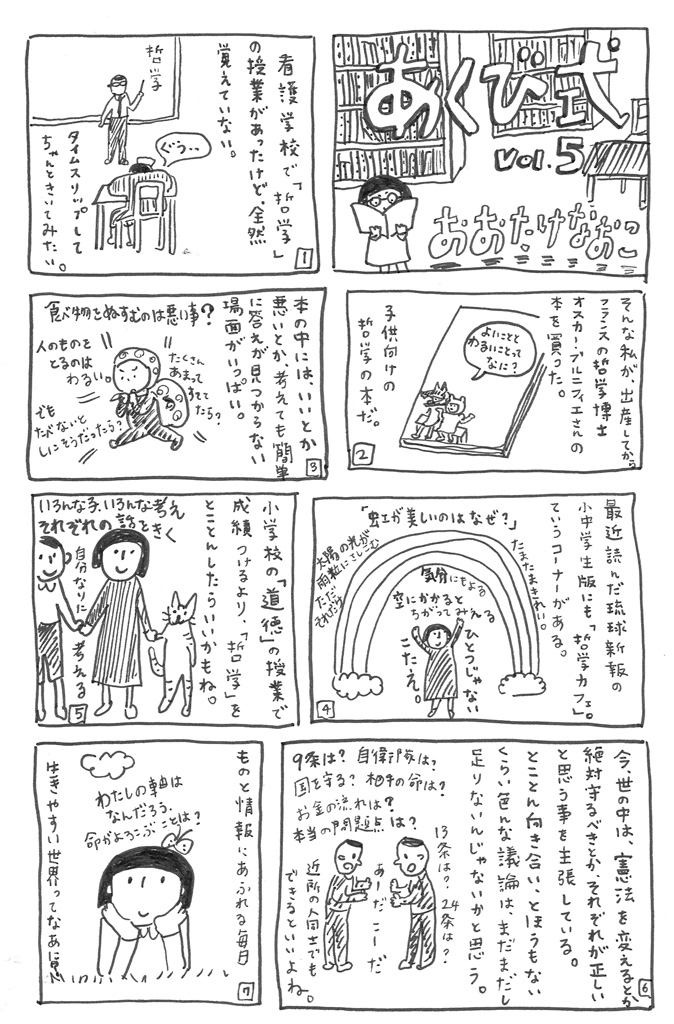 あくび式
vol.5
おおたけなおこ
看護学校で「哲学」
の授業があったけど、全然
覚えていない。
哲学
ぐぅ…
タイムスリップして
ちゃんときいてみたい。
1
そんな私が、出産してから
フランスの哲学博士
オスカー・ブルニフィエさんの
本を買った。
よいことと
わるいことって
なに？
子供向けの
哲学の本だ。
2
本の中には、いいとか
悪いとか、考えても簡単
に答えが見つからない
場面がいっぱい。
食べ物をぬすむのは悪い事？
たくさん
あまって
すててたら？
人のものを
とるのは
わるい。
でも
たべないと
しにそうだったら？
3
最近読んだ琉球新報の
小中学生版にも「哲学カフェ」。
ていうコーナーがある。
「虹が美しいのはなぜ？」
たまたまきれい。
気分にもよる
空にかかると
ちがってみえる
太陽の光が
雨粒にさしこむ
ただ
それだけ
ひとつじゃない
こたえ。
4
小学校の「道徳」の授業で
成績つけるより、「哲学」を
とことんしたらいいかもね。
いろんな子、いろんな考え
それぞれの話をきく
自分なりに
考える
5
今世の中は、憲法を変えるとか
絶対守るべきとか、それぞれが正しい
と思う事を主張している。
とことん向き合い、とほうもない
くらい色んな議論は、まだまだし
足りないんじゃないかと思う。
9条は？自衛隊は？
国を守る？相手の命は？
お金の流れは？
本当の問題点は？
13条は？24条は？
あーだこーだ
近所の人同士でも
できるといいよね。
6
ものと情報にあふれる毎日
わたしの軸は
なんだろう。
命がよろこぶことは？
7